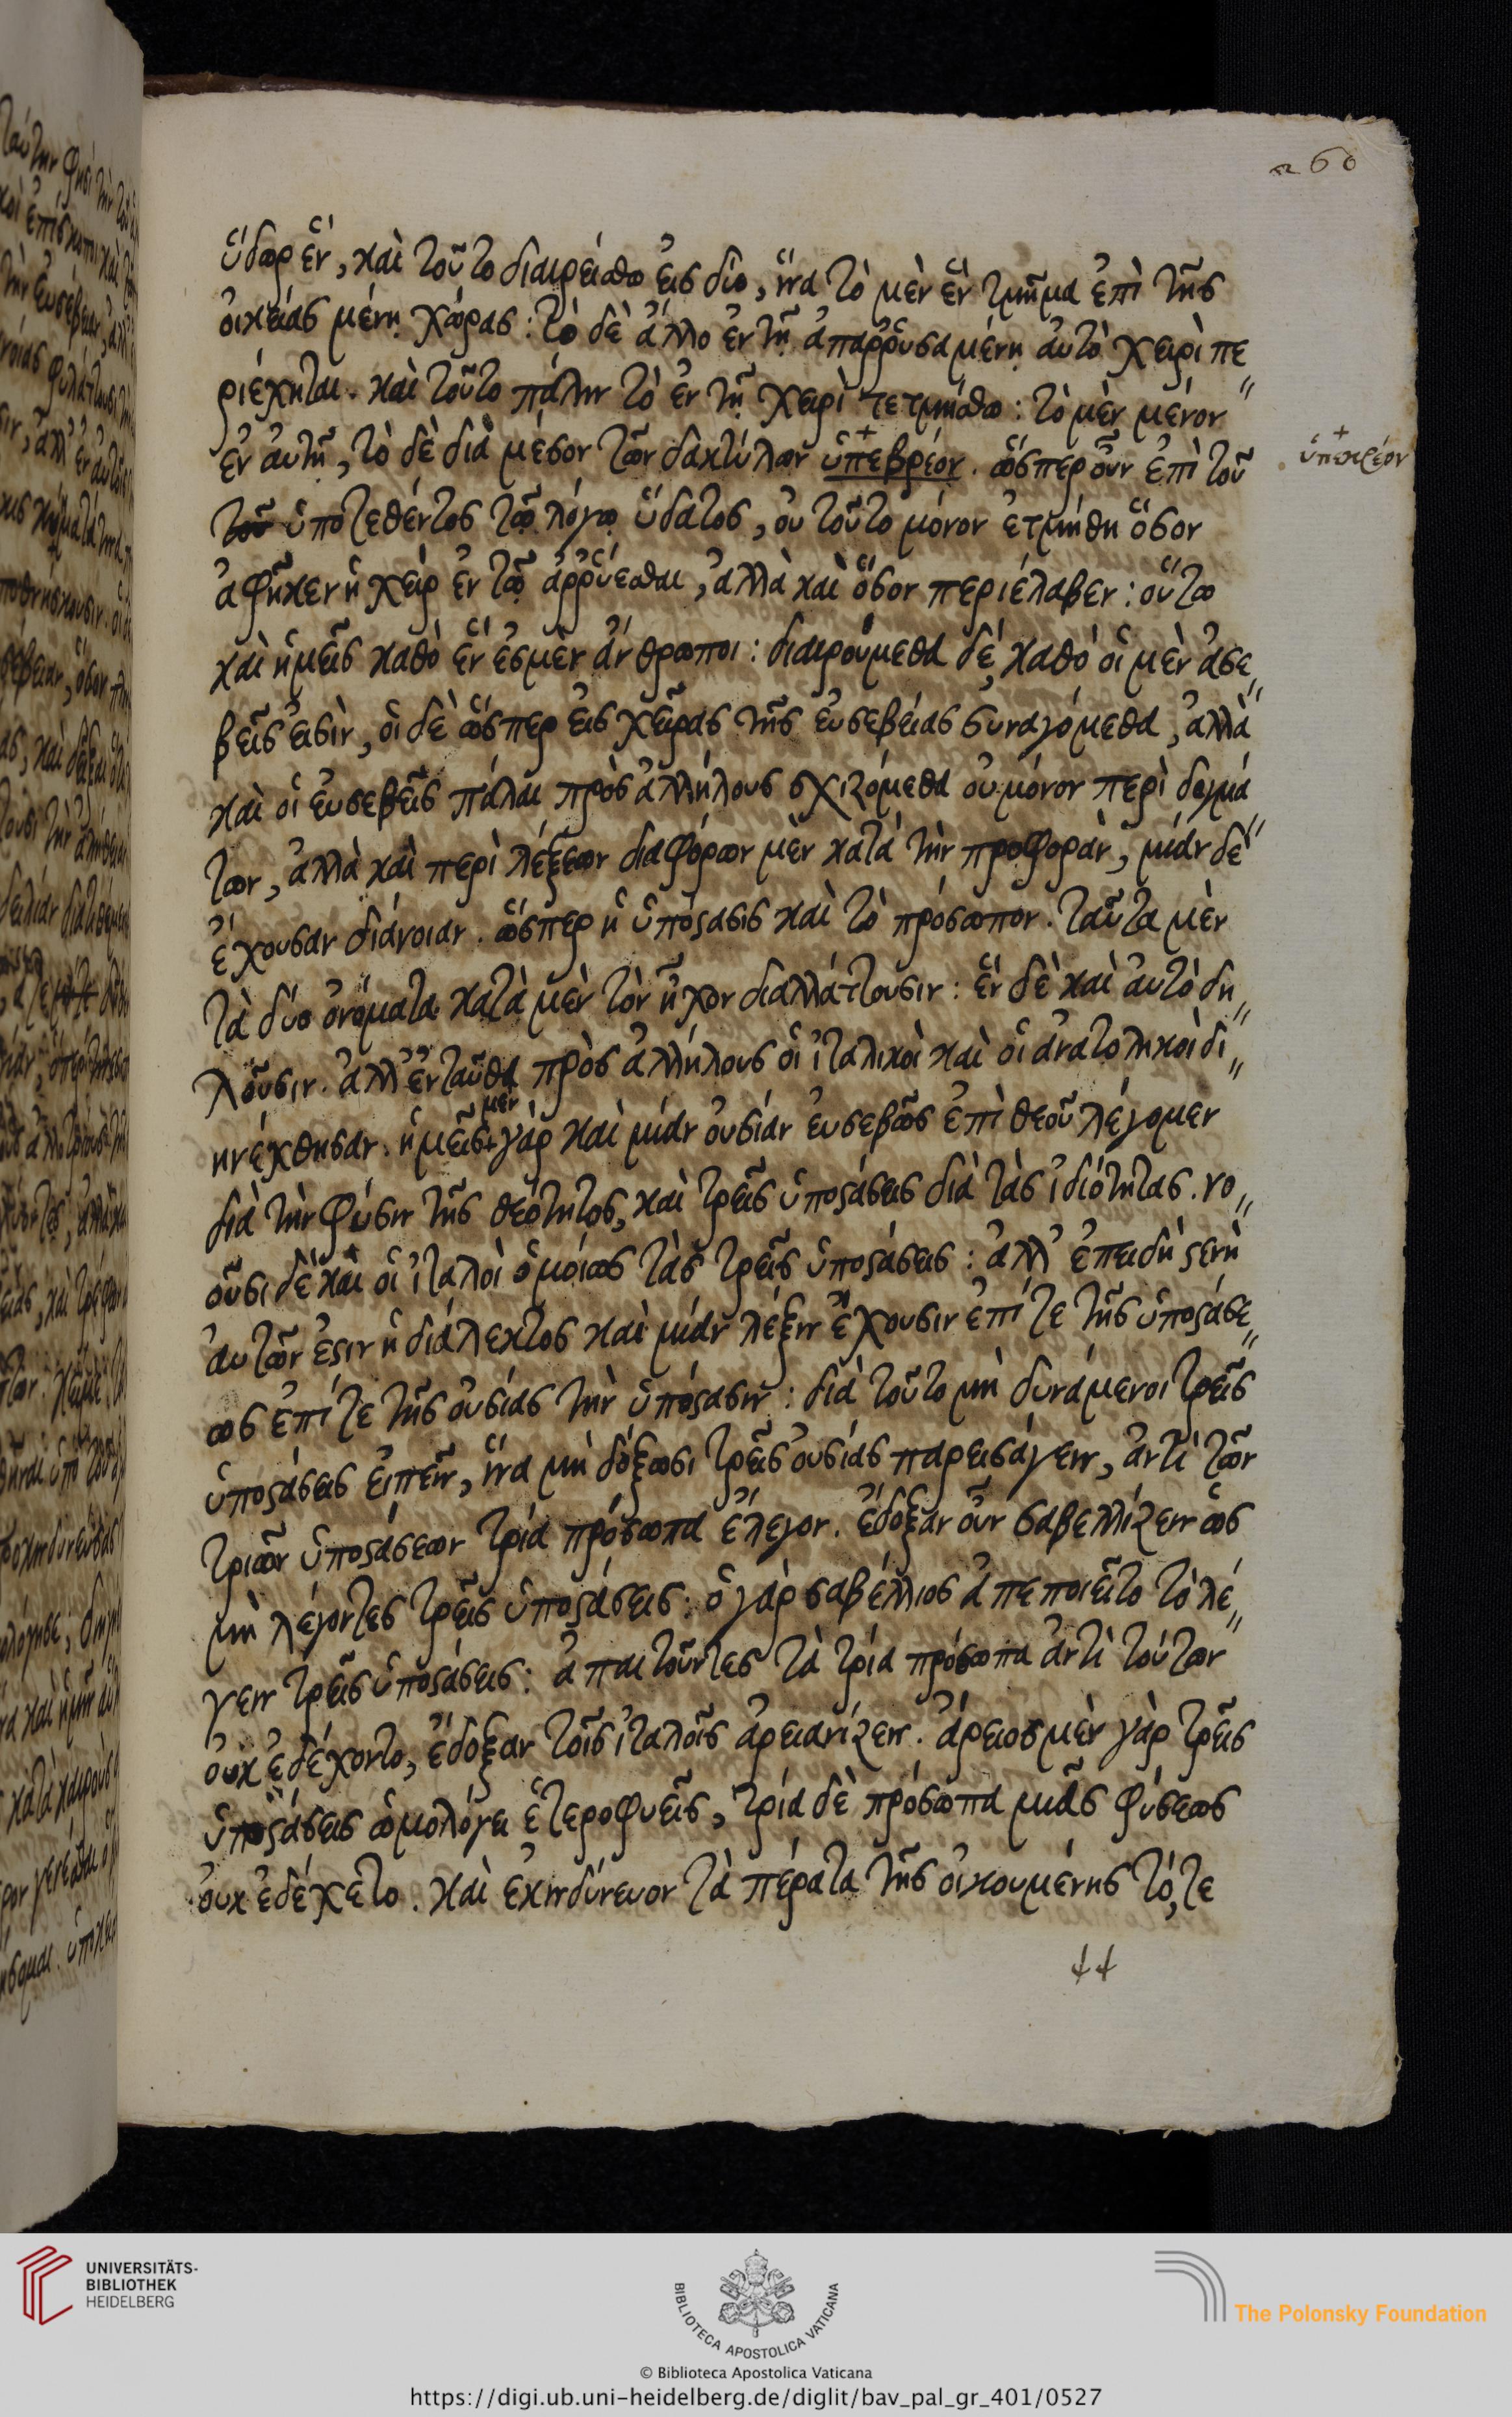 260
ὕδωρ ἓν, καὶ τοῦτο διαιρείσθω εἰς δύο, ἵνα τὸ μὲν ἓν τμῆμα ἐπὶ τῆς
οἰκείας μένῃ χώρας: τὸ δὲ ἄλλο ἐν τῇ ἀπαῤῥυσαμένῃ αὐτὸ χειρὶ πε〃
ριέχηται. καὶ τοῦτο πάλιν τὸ ἐν τῇ χειρὶ τετμήσθω: τὸ μὲν μένον
ἐν αὐτῇ, τὸ δὲ διὰ μέσον τῶν δακτύλων ὑπεβρέον. ὥσπερ οὖν ἐπὶ τοῦ
ὑπεκρέον
τοῦ ὑποτεθέντος τῷ λόγῳ ὕδατος, οὐ τοῦτο μόνον ἐτμήθη ὅσον
ἀφῆκεν ἡ χεὶρ ἐν τῷ ἀῤῥύεσθαι, ἀλλὰ καὶ ὅσον περιέλαβεν: οὕτω
καὶ ἡμεῖς καθὸ ἕν ἐσμὲν ἄνθρωποι: διαιρούμεθα δὲ, καθὸ οἱ μὲν ἀσε〃
βεῖς εἰσὶν, οἱ δὲ ὥσπερ εἰς χεῖρας τῆς εὐσεβείας συναγόμεθα, ἀλλὰ
καὶ οἱ εὐσεβεῖς πάλαι πρὸς ἀλλήλους σχιζόμεθα οὐ μόνον περὶ δογμά〃
των, ἀλλὰ καὶ περὶ λέξεων διαφόρων μὲν κατὰ τὴν προφορὰν, μίαν δὲ
ἔχουσαν διάνοιαν. ὥσπερ ἡ ὑπόϛασις καὶ τὸ πρόσωπον. ταῦτα μὲν
τὰ δύο ὀνόματα κατὰ μὲν τὸν ἦχον διαλλάττουσιν: ἓν δὲ καὶ αὐτὸ δη〃
λοῦσιν. ἀλλ' ἐνταῦθα πρὸς ἀλλήλους οἱ ἰταλικοὶ καὶ οἱ ἀνατολικοὶ δι〃
ηνέχθησαν. ἡμεῖς μὲν γὰρ καὶ μίαν οὐσίαν εὐσεβῶς ἐπὶ θεοῦ λέγομεν
διὰ τὴν φύσιν τῆς θεότητος, καὶ τρεῖς ὑποϛάσεις διὰ τὰς ἰδιότητας. νο〃
οῦσι δὲ καὶ οἱ ἰταλοὶ ὁμοίως τὰς τρεῖς ὑποϛάσεις: ἀλλ' ἐπειδὴ ϛενὴ
αὐτῶν ἐϛιν ἡ διάλεκτος καὶ μίαν λέξιν ἔχουσιν ἐπί τε τῆς ὑποϛάσε〃
ως ἐπί τε τῆς οὐσίας τὴν ὑπόϛασιν: διὰ τοῦτο μὴ δυνάμενοι τρεῖς
ὑποϛάσεις εἰπεῖν, ἵνα μὴ δόξωσι τρεῖς οὐσίας παρεισάγειν, ἀντὶ τῶν
τριῶν ὑποϛάσεων τρία πρόσωπα ἔλεγον. ἔδοξαν οὖν σαβελλίζειν ὡς
μὴ λέγοντες τρεῖς ὑποϛάσεις: ὁ γὰρ σαβέλλιος ἀπεποιεῖτο τὸ λέ〃
γειν τρεῖς ὑποϛάσεις: ἀπαιτοῦντες τὰ τρία πρόσωπα ἀντὶ τούτων
οὐκ ἐδέχοντο, ἔδοξαν τοῖς ἰταλοῖς ἀρειανίζειν. ἄρειος μὲν γὰρ τρεῖς
ὑποϛάσεις ὡμολόγει ἑτεροφυεῖς, τρία δὲ πρόσωπα μιᾶς φύσεως
οὐκ ἐδέχετο. καὶ ἐκινδύνευον τὰ πέρατα τῆς οἰκουμένης τότε
UNIVERSITÄTS-
BIBLIOTHEK
HEIDELBERG
BIBLIOTECA APOSTOLICA VATICANA
The Polonsky Foundation
© Biblioteca Apostolica Vaticana
https://digi.ub.uni-heidelberg.de/diglit/bav_pal_gr_401/0527